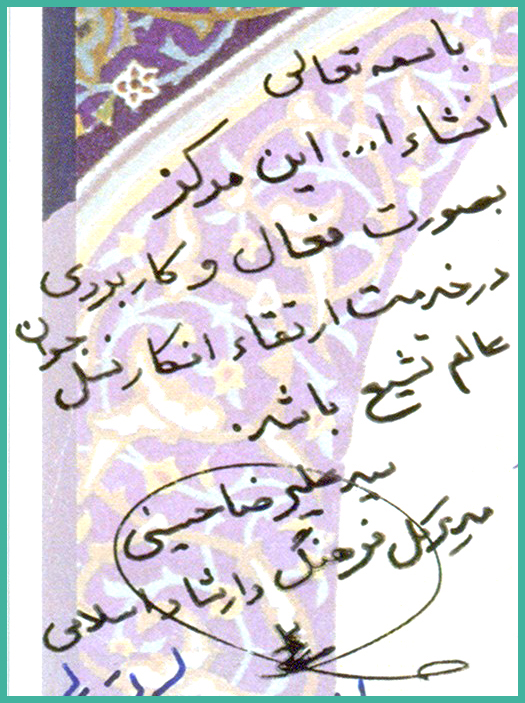 باسمه تعالی
انشاءا... این مرکز
بصورت فعال و کاربردی
در خدمت ارتقاء افکار نسل جوان
عالم تشیع باشد.
سید علیرضا حسینی
مدیرکل فرهنگ و ارشاد اسلامی